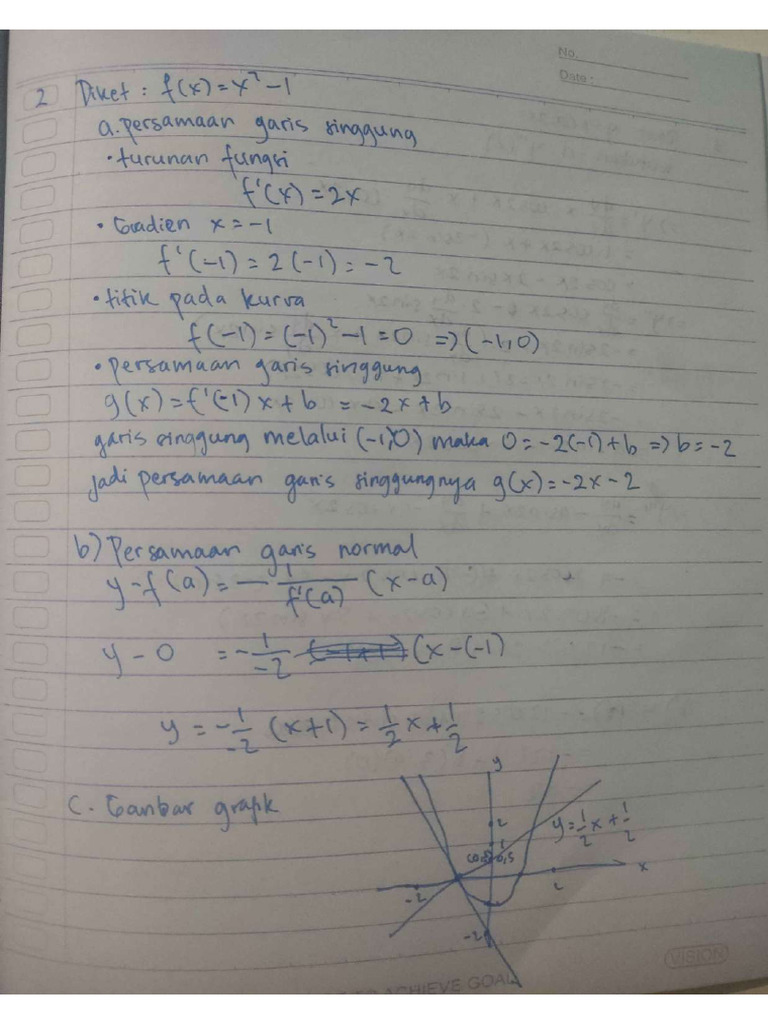 No.
Date:
2 Diket : f(x) = x² - 1
a. persamaan garis singgung
• turunan fungsi
f'(x) = 2x
• Gradien x = -1
f'(-1) = 2(-1) = -2
• titik pada kurva
f(-1) = (-1)² - 1 = 0 => (-1,0)
• persamaan garis singgung
g(x) = f'(-1) x + b = -2x + b
garis singgung melalui (-1,0) maka 0 = -2(-1) + b => b = -2
jadi persamaan garis singgungnya g(x) = -2x - 2
b) Persamaan garis normal
y - f(a) = - 1/f'(a) (x - a)
y - 0 = - 1/-2 (x - (-1)
y = - 1/-2 (x + 1) = 1/2 x + 1/2
C. Gambar grapik
y
2
1
y = 1/2 x + 1/2
x
-2
2
-2
VISION
ACHIEVE GOAL